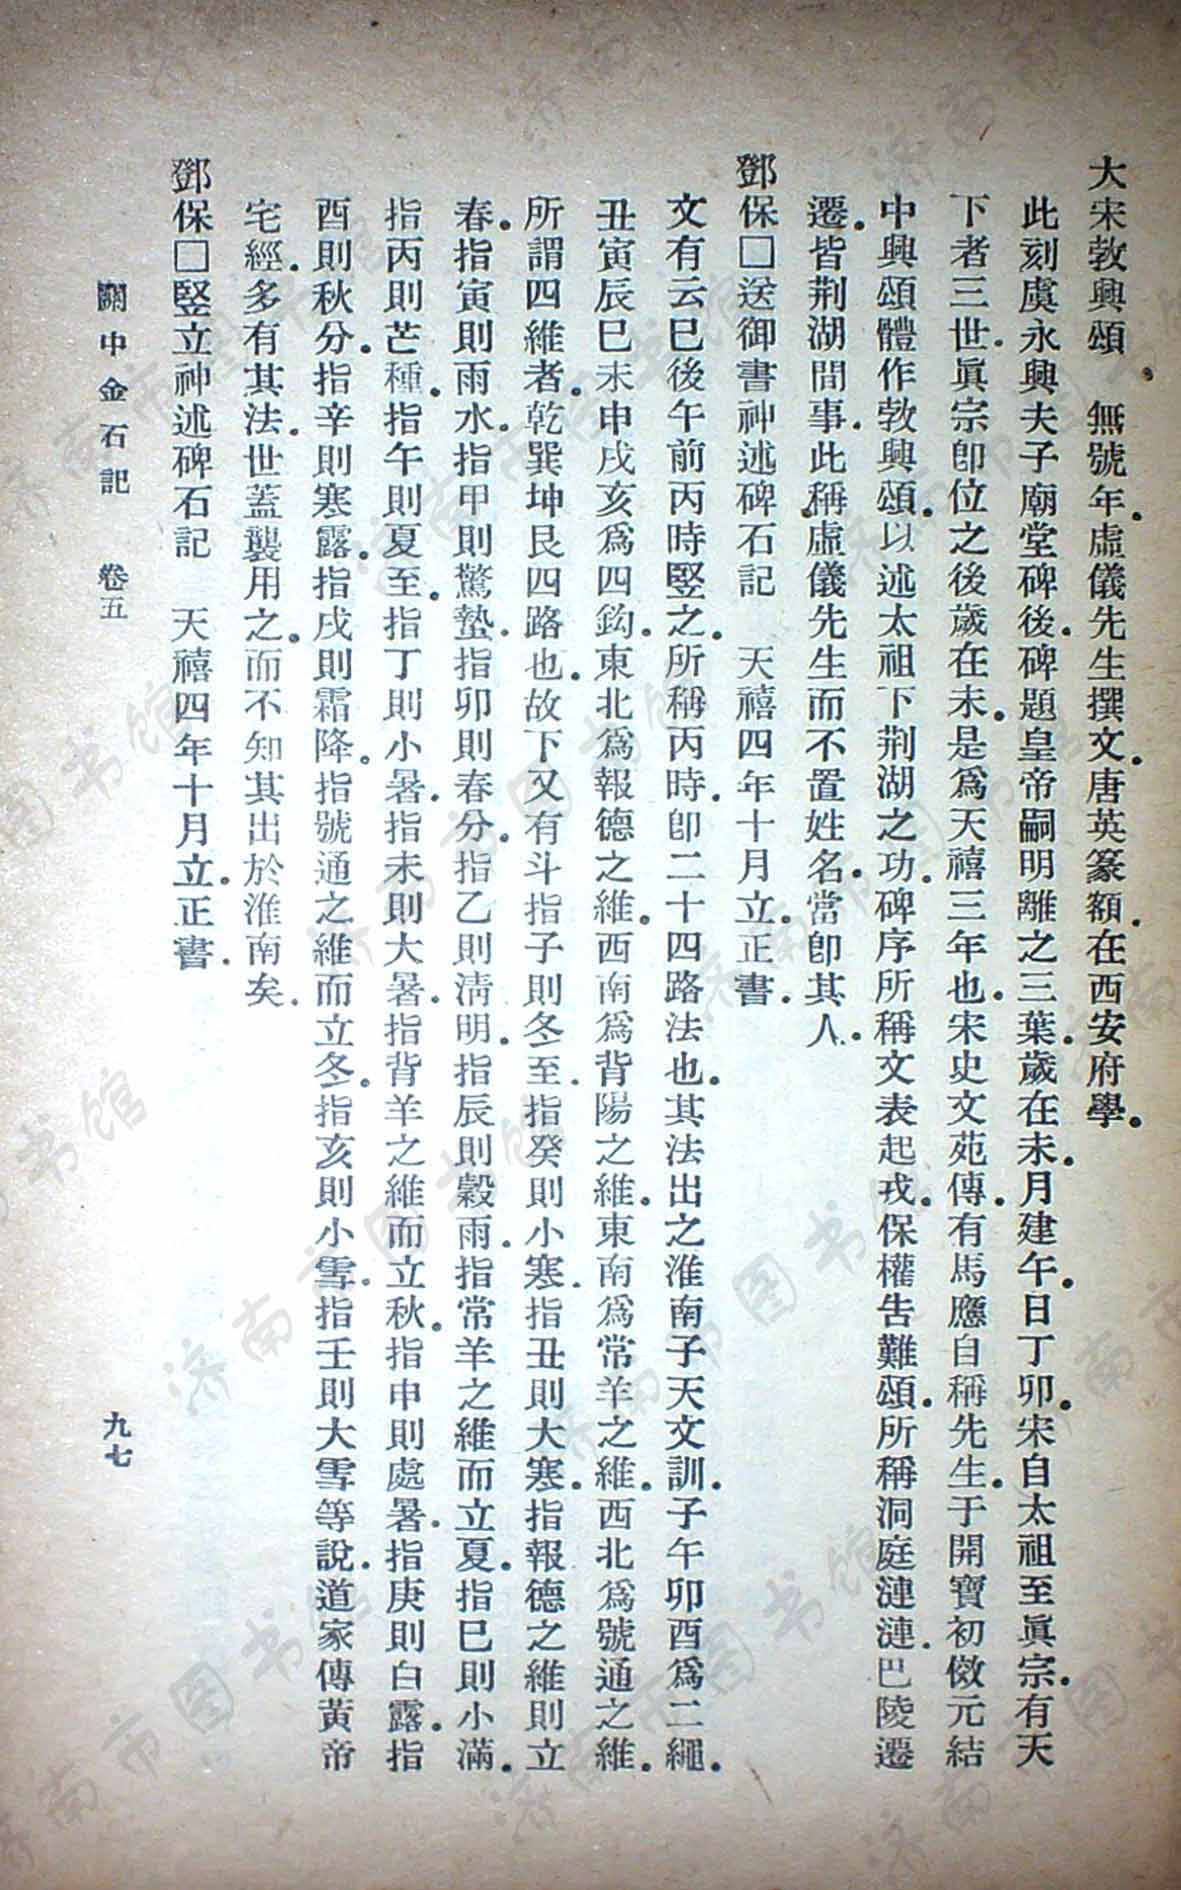 大宋敦興頌　無號年。虛儀先生撰文。唐英篆額。在西安府學。
此刻虞永興夫子廟堂碑後。碑題皇帝嗣明離之三葉。歲在未。月建午。日丁卯。宋自太祖至眞宗。有天
下者三世。眞宗卽位之後。歲在未。是爲天禧三年也。宋史文苑傳。有馬應自稱先生。于開寶初。倣元結
中興頌體作敦興頌。以述太祖下荆湖之功。碑序所稱文表起戎。保權告難。頌所稱洞庭漣漣。巴陵遷
遷。皆荆湖間事。此稱虛儀先生而不置姓名。當卽其人。
鄧保□送御書神述碑石記　天禧四年十月立。正書。
文有云巳後午前丙時竪之。所稱丙時。卽二十四路法也。其法出之淮南子天文訓。子午卯酉爲二繩。
丑寅辰巳未申戌亥爲四鈎。東北爲報德之維。西南爲背陽之維。東南爲常羊之維。西北爲號通之維。
所謂四維者。乾巽坤艮四路也。故下又有斗指子則冬至。指癸則小寒。指丑則大寒。指報德之維則立
春。指寅則雨水。指甲則驚蟄。指卯則春分。指乙則淸明。指辰則穀雨。指常羊之維而立夏。指巳則小滿。
指丙則芒種。指午則夏至。指丁則小暑。指未則大暑。指背羊之維而立秋。指申則處暑。指庚則白露。指
酉則秋分。指辛則寒露。指戌則霜降。指號通之維而立冬。指亥則小雪。指壬則大雪等說。道家傳黃帝
宅經。多有其法。世蓋襲用之。而不知其出於淮南矣。
鄧保□竪立神述碑石記　天禧四年十月立。正書。
關中金石記　卷五　九七
济南市图书馆